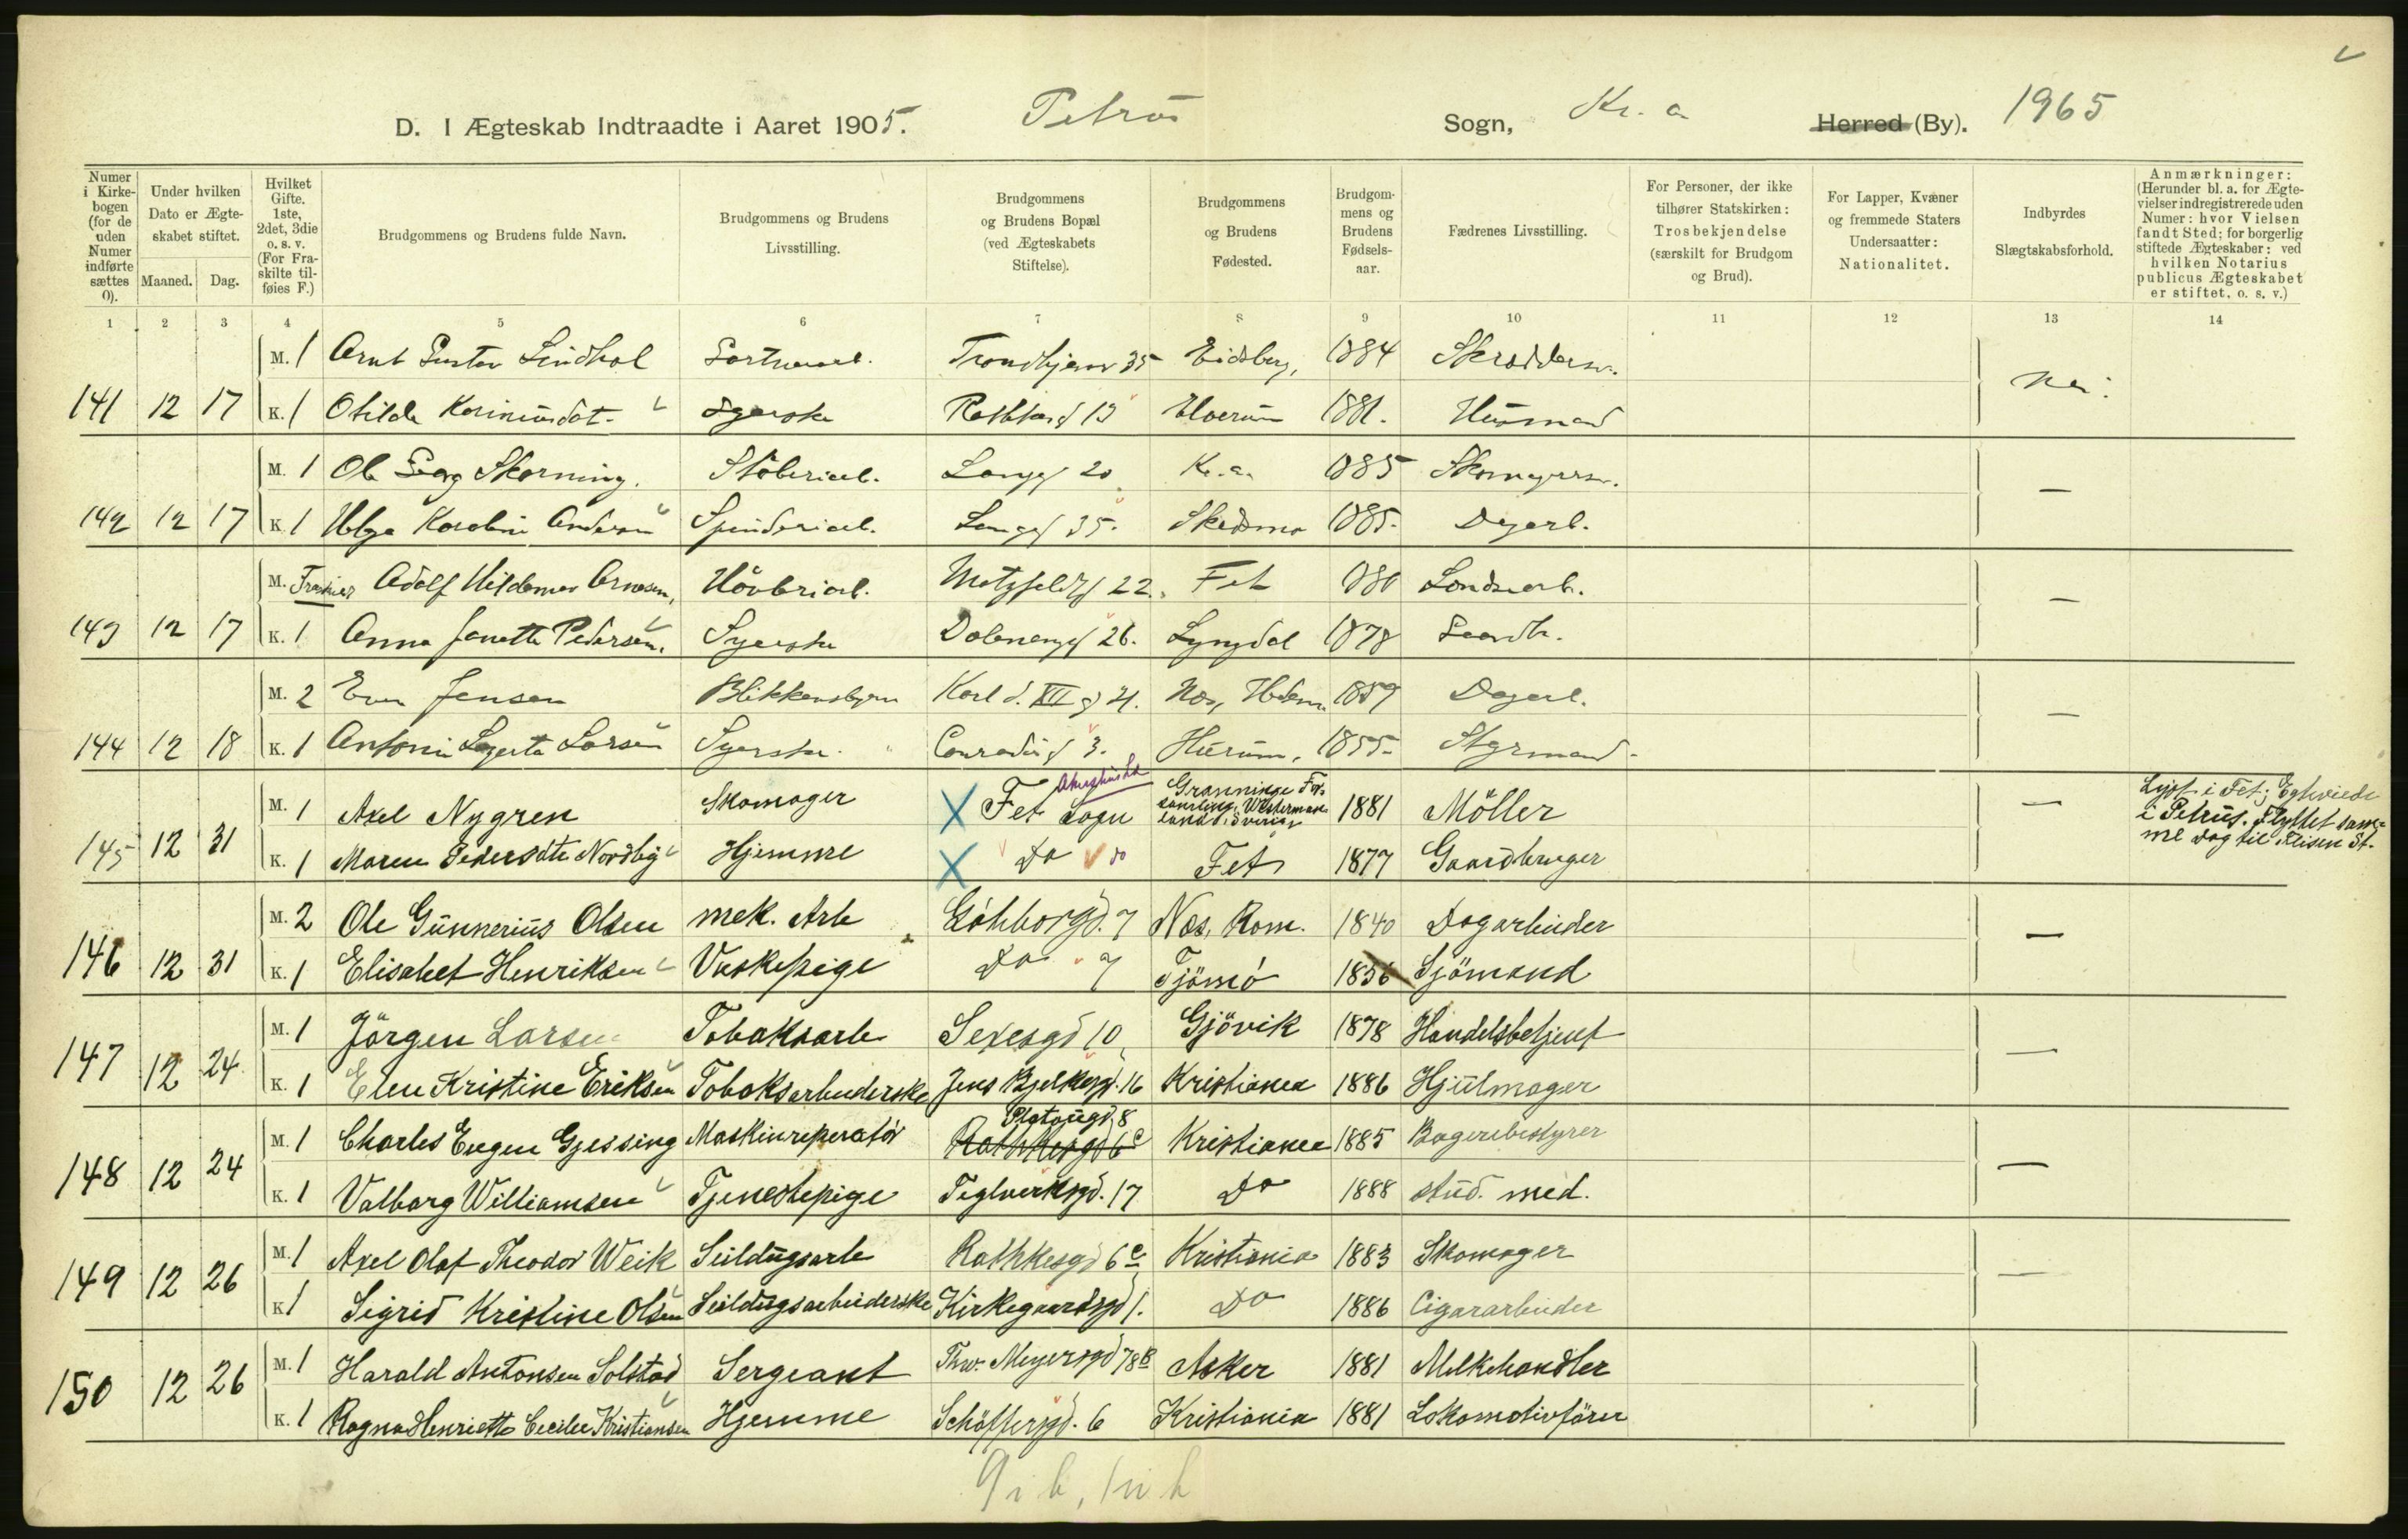 D. I Ægteskab Indtraadte i Aaret 1905. Petrus Sogn, Kr. a Herred (By). 1965
Numer i Kirkebogen (for de uden Numer indførte sættes 0).
Under hvilken Dato er Ægteskabet stiftet.
Maaned. Dag.
Hvilket Gifte. 1ste, 2det, 3die o. s. v. (For Fraskilte tilføies F.)
Brudgommens og Brudens fulde Navn.
Brudgommens og Brudens Livsstilling.
Brudgommens og Brudens Bopæl (ved Ægteskabets Stiftelse).
Brudgommens og Brudens Fødested.
Brudgommens og Brudens Fødselsaar.
Fædrenes Livsstilling.
For Personer, der ikke tilhører Statskirken: Trosbekjendelse (særskilt for Brudgom og Brud).
For Lapper, Kvæner og fremmede Staters Undersaatter: Nationalitet.
Indbyrdes Slægtskabsforhold.
Anmærkninger: (Herunder bl. a. for Ægtevielser indregistrerede uden Numer: hvor Vielsen fandt Sted; for borgerlig stiftede Ægteskaber: ved hvilken Notarius publicus Ægteskabet er stiftet, o. s. v.)
1 2 3 4 5 6 7 8 9 10 11 12 13 14
M. 1 Arnt Gustav Lindhol Gartnerarb. Trondhjemsv 35 Eidsberg, 1884 Skrædderm.
141 12 17 K. 1 Otilde Karinusdat. Syerske Rathkesg 13 Elverum 1881. Husmand nei.
M. 1 Ole Georg Skorning. Støberiarb. Langg 20 Kr. a. 1885 Skomagerm.
142 12 17 K. 1 Helga Karoline Andersen Spinderiarb. Langg 35. Skedsmo 1885. Dagarb. —
M. Adolf Hildemar Arnesen, Høvleriarb. Motzfeldtsg 22. Fet Landarb.
143 12 17 K. 1 Anna Janette Pedersen. Syerske Dalenenggt 26. Lyngdal 1878 Gaardbr. —
M. 2 Even Jensen Blikkenslager Karl d. XII g 21. Nes, Hedem. 1859 Dagarb.
144 12 18 K. 1 Antonie Larsen Syerske Conradisg 3. Hurum, 1855. Styrmand. —
M. 1 Axel Nygren Skomager X Fet Sogn Akershus 1881 Möller — Lyst i Fet; Egteviede
145 12 31 K. 1 Maren Pedersdtr Nordby Hjemme X Do do Fet 1877 Gaardbruger i Petrus. Flyttet samme Dag til Flisen St.
M. 2 Ole Gunnerius Olsen mek. Arb Göteborgd. 7 Nes, Rom. 1840 Dagarbeider
146 12 31 K. 1 Elisabet Henriksen Vaskepige Do 7 Tjömö 1856 Sjömand —
M. 1 Jörgen Larsen Tobaksarb Sexesgd 10 Gjövik 1878 Handelsbetjent
147 12 24 K. 1 Elen Kristine Eriksen Tobaksarbeiderske Jens Bjelkesgd. 16 Kristiania 1886 Hjulmager —
M. 1 Charles Eugen Gjessing Maskinreperatör Platougd. 8 Rathkesgd 6c Kristiania 1885 Bageribestyrer
148 12 24 K. 1 Valborg Williamsen Tjenestepige Teglverksgd. 17 Do 1888 stud. med. —
M. 1 Axel Olaf Theodor Weik Seildugsarb Rathkesgd 6c Kristiania 1883 Skomager
149 12 26 K 1 Sigrid Kristine Olsen Seildugsarbeiderske Kirkegaardsgd 1. Do 1886 Cigararbeider —
M. 1 Harald Antonsen Solstad Sergeant Thv. Meyersgd 78B Asker 1881 Melkehandler
150 12 26 K. 1 Ragna Henriette Cecilie Kristiansen Hjemme Schöffersgd. 6 Kristiania 1881 Lokomotivförer
9 i b, 1 u b